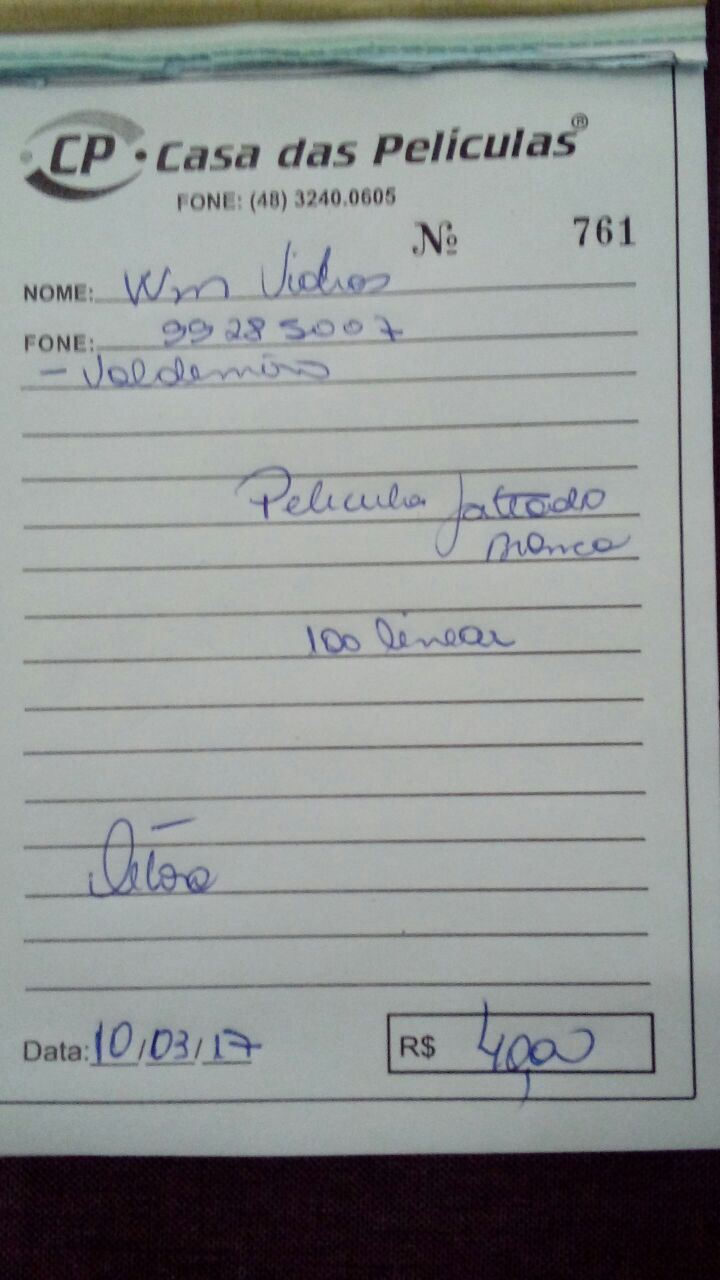 CP • Casa das Películas®
FONE: (48) 3240.0605
Nº 761
NOME: Wm Vidros
FONE: 99285007
- Valdemiro
Pelicula Jateado
Branca
100 linear
Data: 10/03/17
R$ 40,00